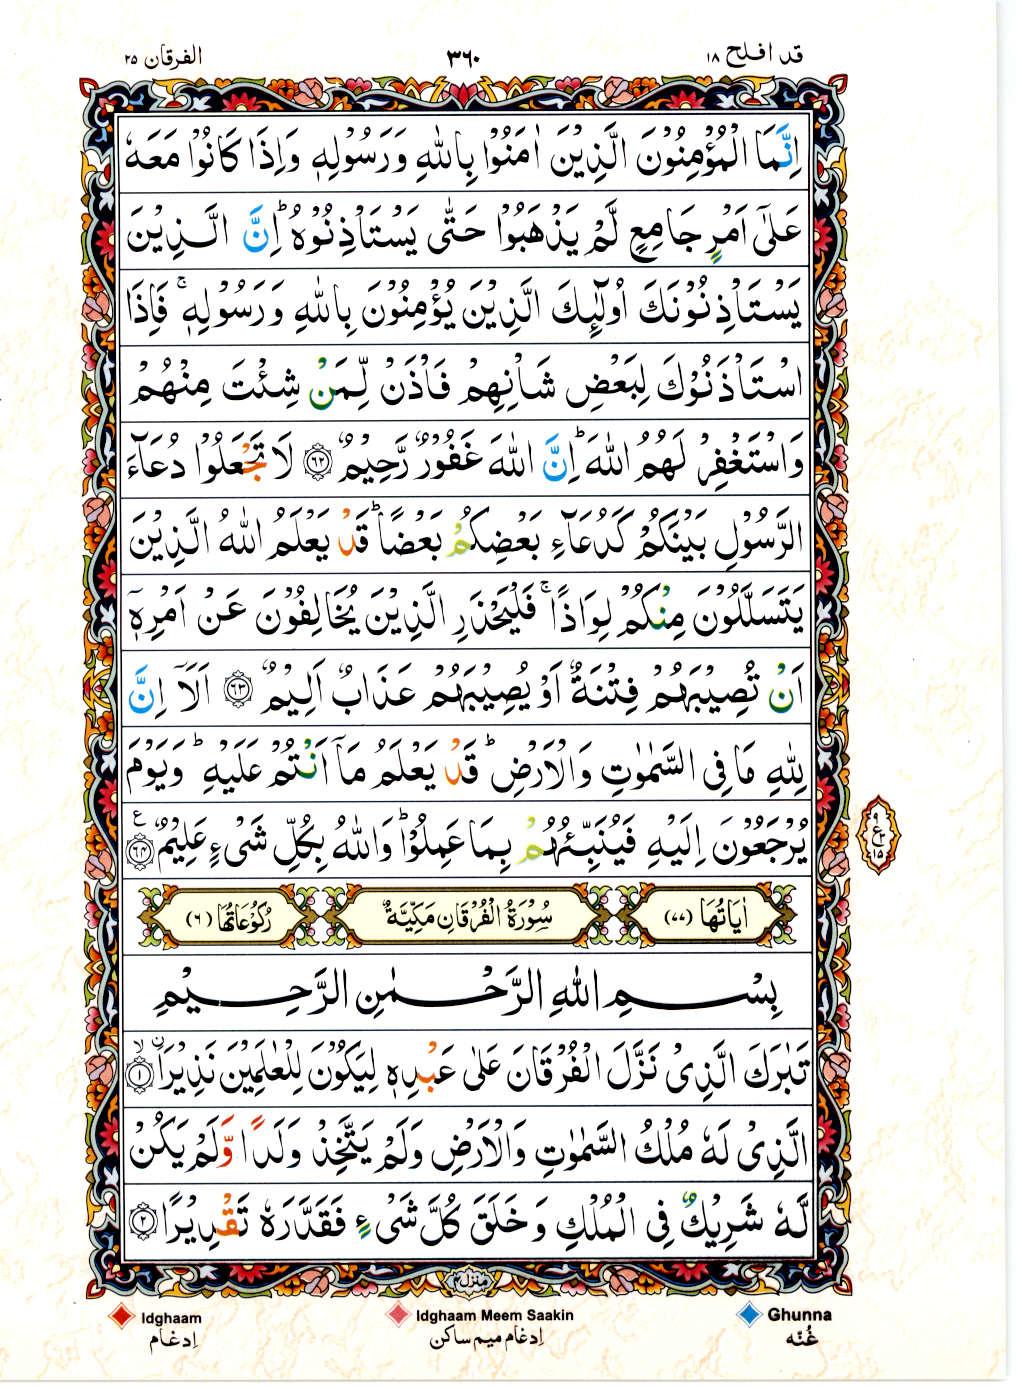 قد افلح ١٨
٣٦٠
الفرقان ٢٥
اِنَّمَا الْمُؤْمِنُوْنَ الَّذِيْنَ اٰمَنُوْا بِاللّٰهِ وَرَسُوْلِهٖ وَاِذَا كَانُوْا مَعَهٗ
عَلٰٓى اَمْرٍ جَامِعٍ لَّمْ يَذْهَبُوْا حَتّٰى يَسْتَاْذِنُوْهُ ؕ اِنَّ الَّذِيْنَ
يَسْتَاْذِنُوْنَكَ اُولٰٓئِكَ الَّذِيْنَ يُؤْمِنُوْنَ بِاللّٰهِ وَرَسُوْلِهٖ ۚ فَاِذَا
اسْتَاْذَنُوْكَ لِبَعْضِ شَاْنِهِمْ فَاْذَنْ لِّمَنْ شِئْتَ مِنْهُمْ
وَاسْتَغْفِرْ لَهُمُ اللّٰهَ ؕ اِنَّ اللّٰهَ غَفُوْرٌ رَّحِيْمٌ ﴿٦٢﴾ لَا تَجْعَلُوْا دُعَآءَ
الرَّسُوْلِ بَيْنَكُمْ كَدُعَآءِ بَعْضِكُمْ بَعْضًا ؕ قَدْ يَعْلَمُ اللّٰهُ الَّذِيْنَ
يَتَسَلَّلُوْنَ مِنْكُمْ لِوَاذًا ۚ فَلْيَحْذَرِ الَّذِيْنَ يُخَالِفُوْنَ عَنْ اَمْرِهٖٓ
اَنْ تُصِيْبَهُمْ فِتْنَةٌ اَوْ يُصِيْبَهُمْ عَذَابٌ اَلِيْمٌ ﴿٦٣﴾ اَلَآ اِنَّ
لِلّٰهِ مَا فِى السَّمٰوٰتِ وَالْاَرْضِ ؕ قَدْ يَعْلَمُ مَآ اَنْتُمْ عَلَيْهِ ؕ وَيَوْمَ
يُرْجَعُوْنَ اِلَيْهِ فَيُنَبِّئُهُمْ بِمَا عَمِلُوْا ؕ وَاللّٰهُ بِكُلِّ شَىْءٍ عَلِيْمٌ ﴿٦٤﴾ ع
٩
ع
١٥
اٰيَاتُهَا (٧٧)
سُوْرَةُ الْفُرْقَانِ مَكِّيَّةٌ
رُكُوْعَاتُهَا (٦)
بِسْمِ اللّٰهِ الرَّحْمٰنِ الرَّحِيْمِ
تَبٰرَكَ الَّذِىْ نَزَّلَ الْفُرْقَانَ عَلٰى عَبْدِهٖ لِيَكُوْنَ لِلْعٰلَمِيْنَ نَذِيْرَا ۙ ﴿١﴾
الَّذِىْ لَهٗ مُلْكُ السَّمٰوٰتِ وَالْاَرْضِ وَلَمْ يَتَّخِذْ وَلَدًا وَّلَمْ يَكُنْ
لَّهٗ شَرِيْكٌ فِى الْمُلْكِ وَخَلَقَ كُلَّ شَىْءٍ فَقَدَّرَهٗ تَقْدِيْرًا ﴿٢﴾
منزل ٤
Idghaam
Idghaam Meem Saakin
Ghunna
اِدغام
اِدغام میم ساکن
غُنّه